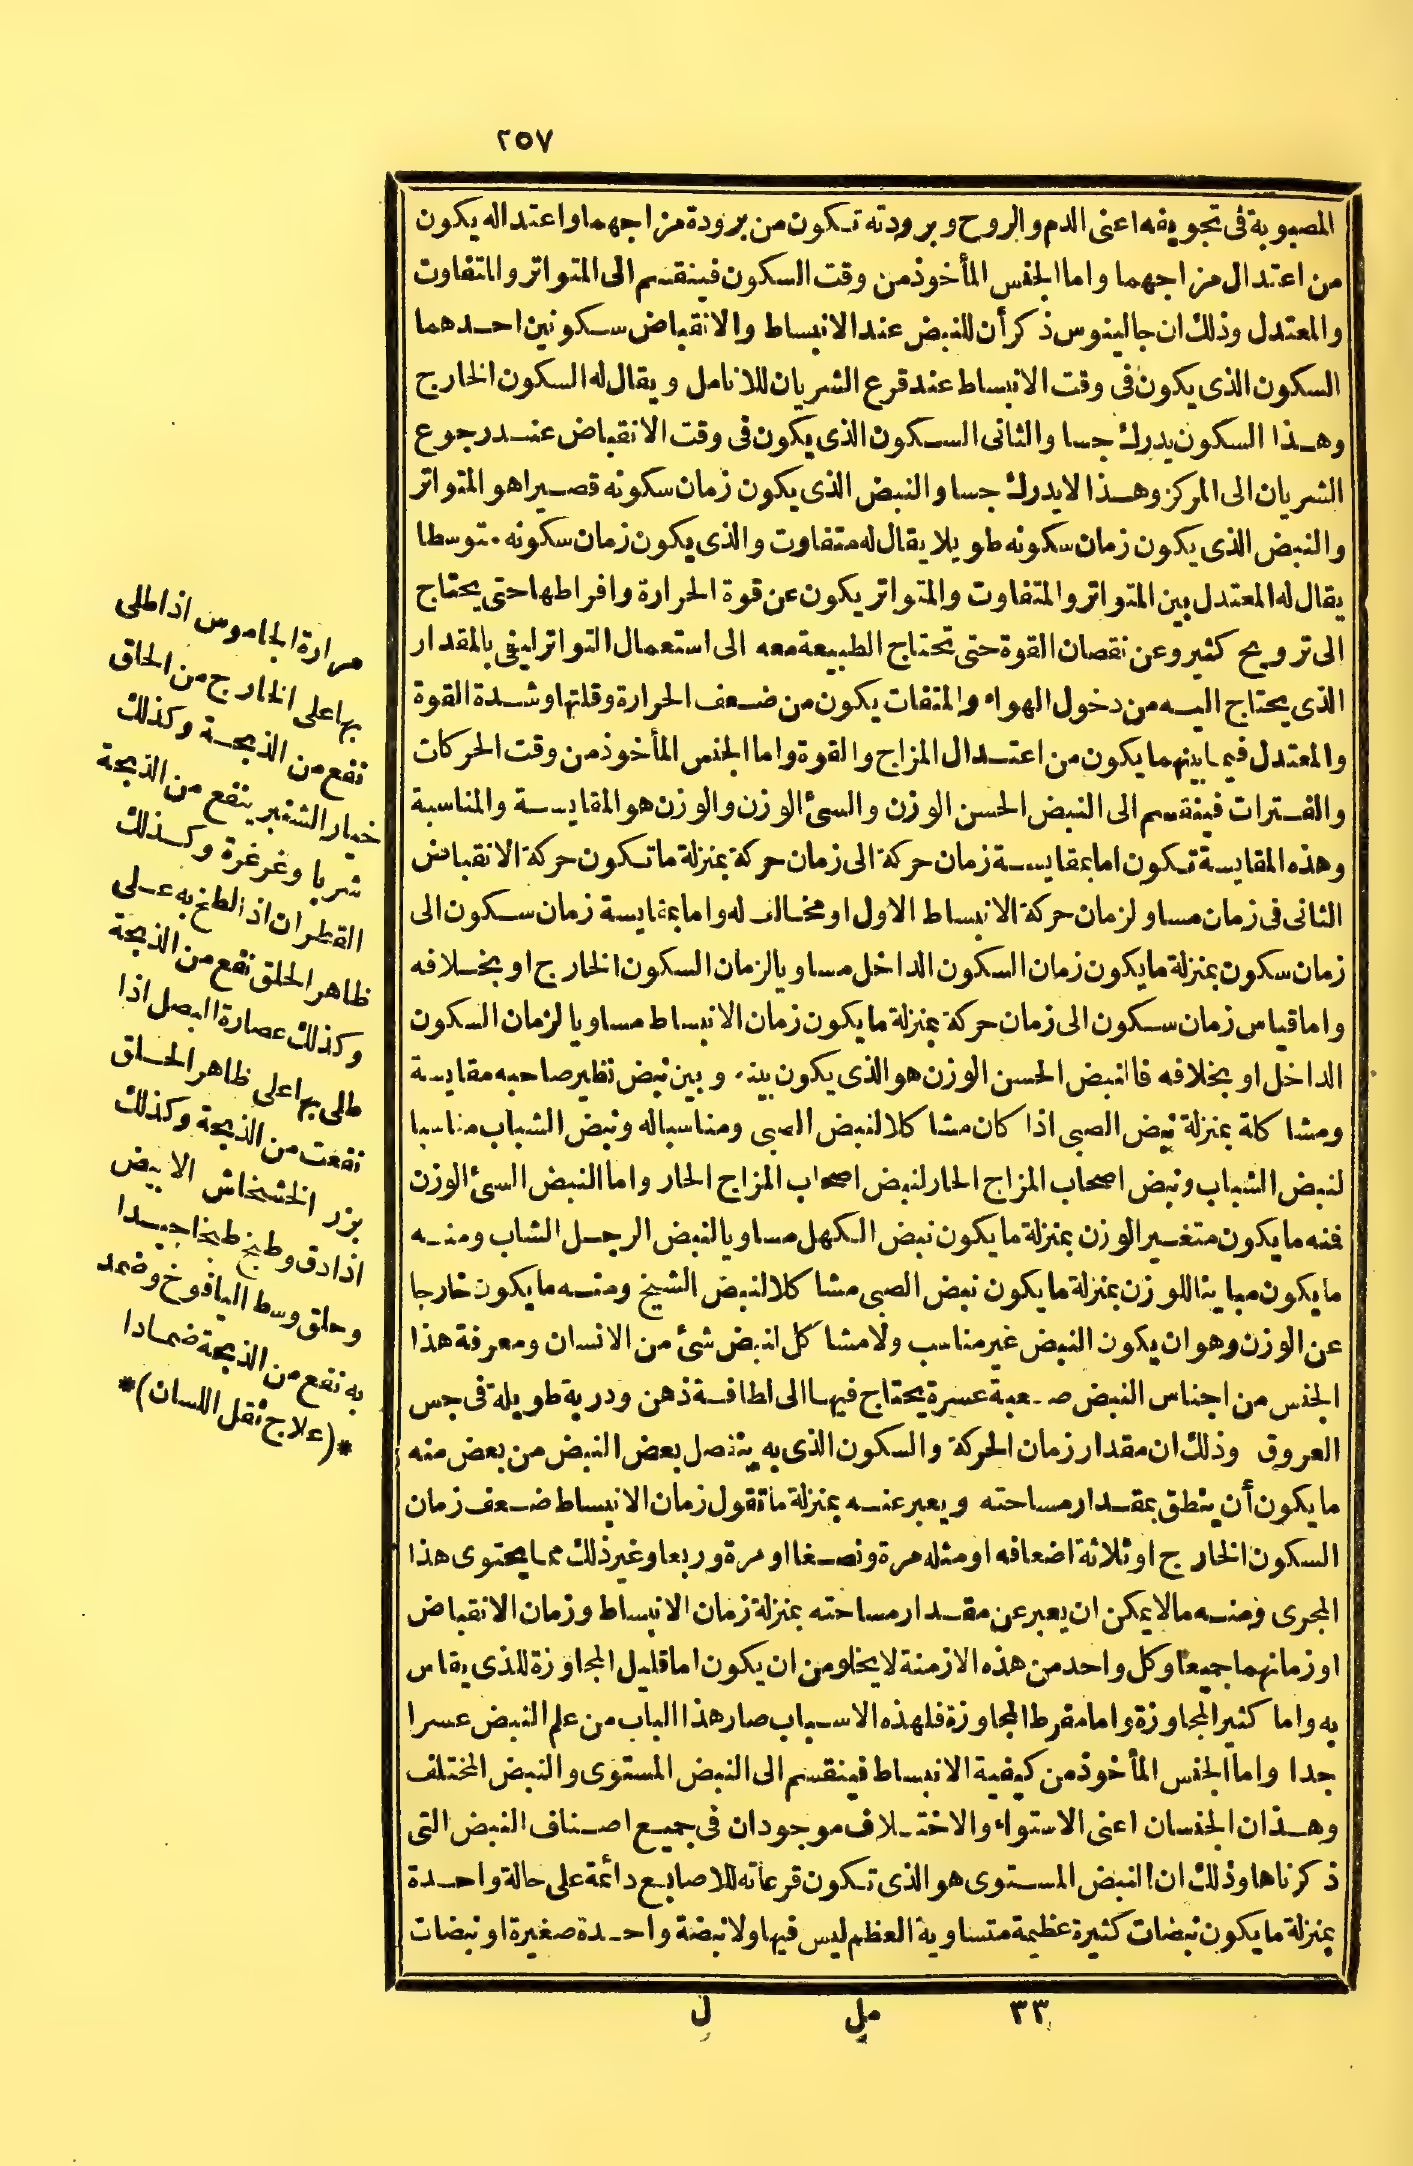 ٢٥٧
المصبوبة فى تجويفه اعنى الدم والروح وبرودته تكون من برودة مزاجهما واعتداله يكون
من اعتدال مزاجهما واما الجنس المأخوذ من وقت السكون فينقسم الى المتواتر والمتفاوت
والمعتدل وذلك ان جالينوس ذكر أن للنبض عند الانبساط والانقباض سكونين احدهما
السكون الذى يكون فى وقت الانبساط عند قرع الشريان للانامل ويقال له السكون الخارج
وهذا السكون يدرك جسا والثانى السكون الذى يكون فى وقت الانقباض عند رجوع
الشريان الى المركز وهذا لا يدرك جسا والنبض الذى يكون زمان سكونه قصيرا هو المتواتر
والنبض الذى يكون زمان سكونه طويلا يقال له متفاوت والذى يكون زمان سكونه متوسطا
يقال له المعتدل بين المتواتر والمتفاوت والمتواتر يكون عن قوة الحرارة وافراطها حتى يحتاج
الى ترويح كثير وعن نقصان القوة حتى تحتاج الطبيعة معه الى استعمال التواتر ليفى بالمقدار
الذى يحتاج اليه من دخول الهواء والمتفات يكون من ضعف الحرارة وقلتها وشدة القوة
والمعتدل فيما بينهما يكون من اعتدال المزاج والقوة واما الجنس المأخوذ من وقت الحركات
والفترات فينقسم الى النبض الحسن الوزن والسئ الوزن والوزن هو المقايسة والمناسبة
وهذه المقايسة تكون اما بمقايسة زمان حركة الى زمان حركة بمنزلة ما تكون حركة الانقباض
الثانى فى زمان مساو لزمان حركة الانبساط الاول او مخالف له واما بمقايسة زمان سكون الى
زمان سكون بمنزلة ما يكون زمان السكون الداخل مساويا لزمان السكون الخارج او بخلافه
واما قياس زمان سكون الى زمان حركة بمنزلة ما يكون زمان الانبساط مساويا لزمان السكون
الداخل او بخلافه فالنبض الحسن الوزن هو الذى يكون بينه وبين نبض نظير صاحبه مقايسة
ومشاكلة بمنزلة نبض الصبى اذا كان مشاكلا لنبض الصبى ومناسبا له ونبض الشباب مناسبا
لنبض الشباب ونبض اصحاب المزاج الحار لنبض اصحاب المزاج الحار واما النبض السئ الوزن
فمنه ما يكون متغير الوزن بمنزلة ما يكون نبض الكهل مساويا لنبض الرجل الشاب ومنه
ما يكون مباينا للوزن بمنزلة ما يكون نبض الصبى مشاكلا لنبض الشيخ ومنه ما يكون خارجا
عن الوزن وهو ان يكون النبض غير مناسب ولا مشاكل لنبض شئ من الانسان ومعرفة هذا
الجنس من اجناس النبض صعبة عسرة يحتاج فيها الى لطافة ذهن ودربة طويلة فى جس
العروق وذلك ان مقدار زمان الحركة والسكون الذى به ينفصل بعض النبض من بعض منه
ما يكون أن ينطق بمقدار مساحته ويعبر عنه بمنزلة ما تقول زمان الانبساط ضعف زمان
السكون الخارج او ثلاثة اضعافه او مثله مرة ونصفا او مرة وربعا وغير ذلك مما يحتوى هذا
المجرى ومنه ما لا يمكن ان يعبر عن مقدار مساحته بمنزلة زمان الانبساط وزمان الانقباض
او زمانهما جميعا وكل واحد من هذه الازمنة لا يخلو من ان يكون اما قليل المجاوزة للذى يقاس
به واما كثير المجاوزة واما مفرط المجاوزة فلهذه الاسباب صار هذا الباب من علم النبض عسرا
جدا واما الجنس المأخوذ من كيفية الانبساط فينقسم الى النبض المستوى والنبض المختلف
وهذان الجنسان اعنى الاستواء والاختلاف موجودان فى جميع اصناف النبض التى
ذكرناها وذلك ان النبض المستوى هو الذى تكون قرعاته للاصابع دائمة على حالة واحدة
بمنزلة ما يكون نبضات كثيرة عظيمة متساوية العظم ليس فيها ولا نبضة واحدة صغيرة او نبضات
٣٣ مل ل
مرارة الجاموس اذا طلى
بها على الخارج من الحلق
نفع من الذبحة وكذلك
خيار الشنبر ينفع من الذبحة
شربا وغرغرة وكذلك
القطران اذا لطخ به على
ظاهر الحلق نفع من الذبحة
وكذلك عصارة البصل اذا
طلى بها على ظاهر الحلق
نفعت من الذبحة وكذلك
بزر الخشخاش الابيض
اذا دق وطبخ طبخا جيدا
وحلق وسط اليافوخ وضمد
به نفع من الذبحة ضمادا
*(علاج ثقل اللسان)*